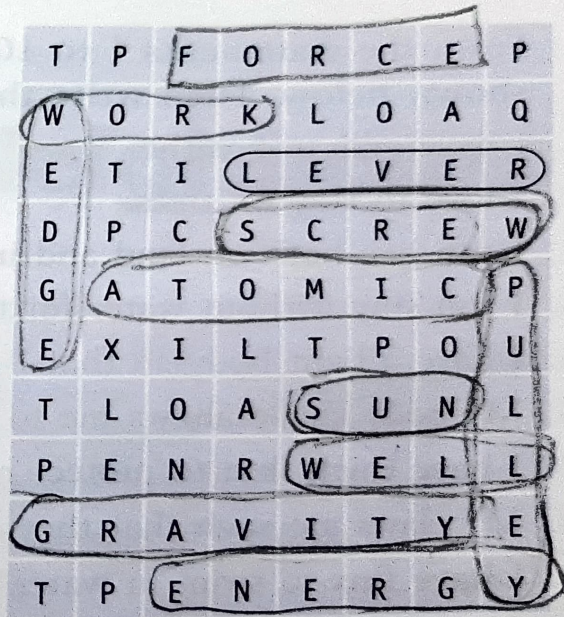 T P F O R C E P
W O R K L O A Q
E T I L E V E R
D P C S C R E W
G A T O M I C P
E X I L T P O U
T L O A S U N L
P E N R W E L L
G R A V I T Y E
T P E N E R G Y